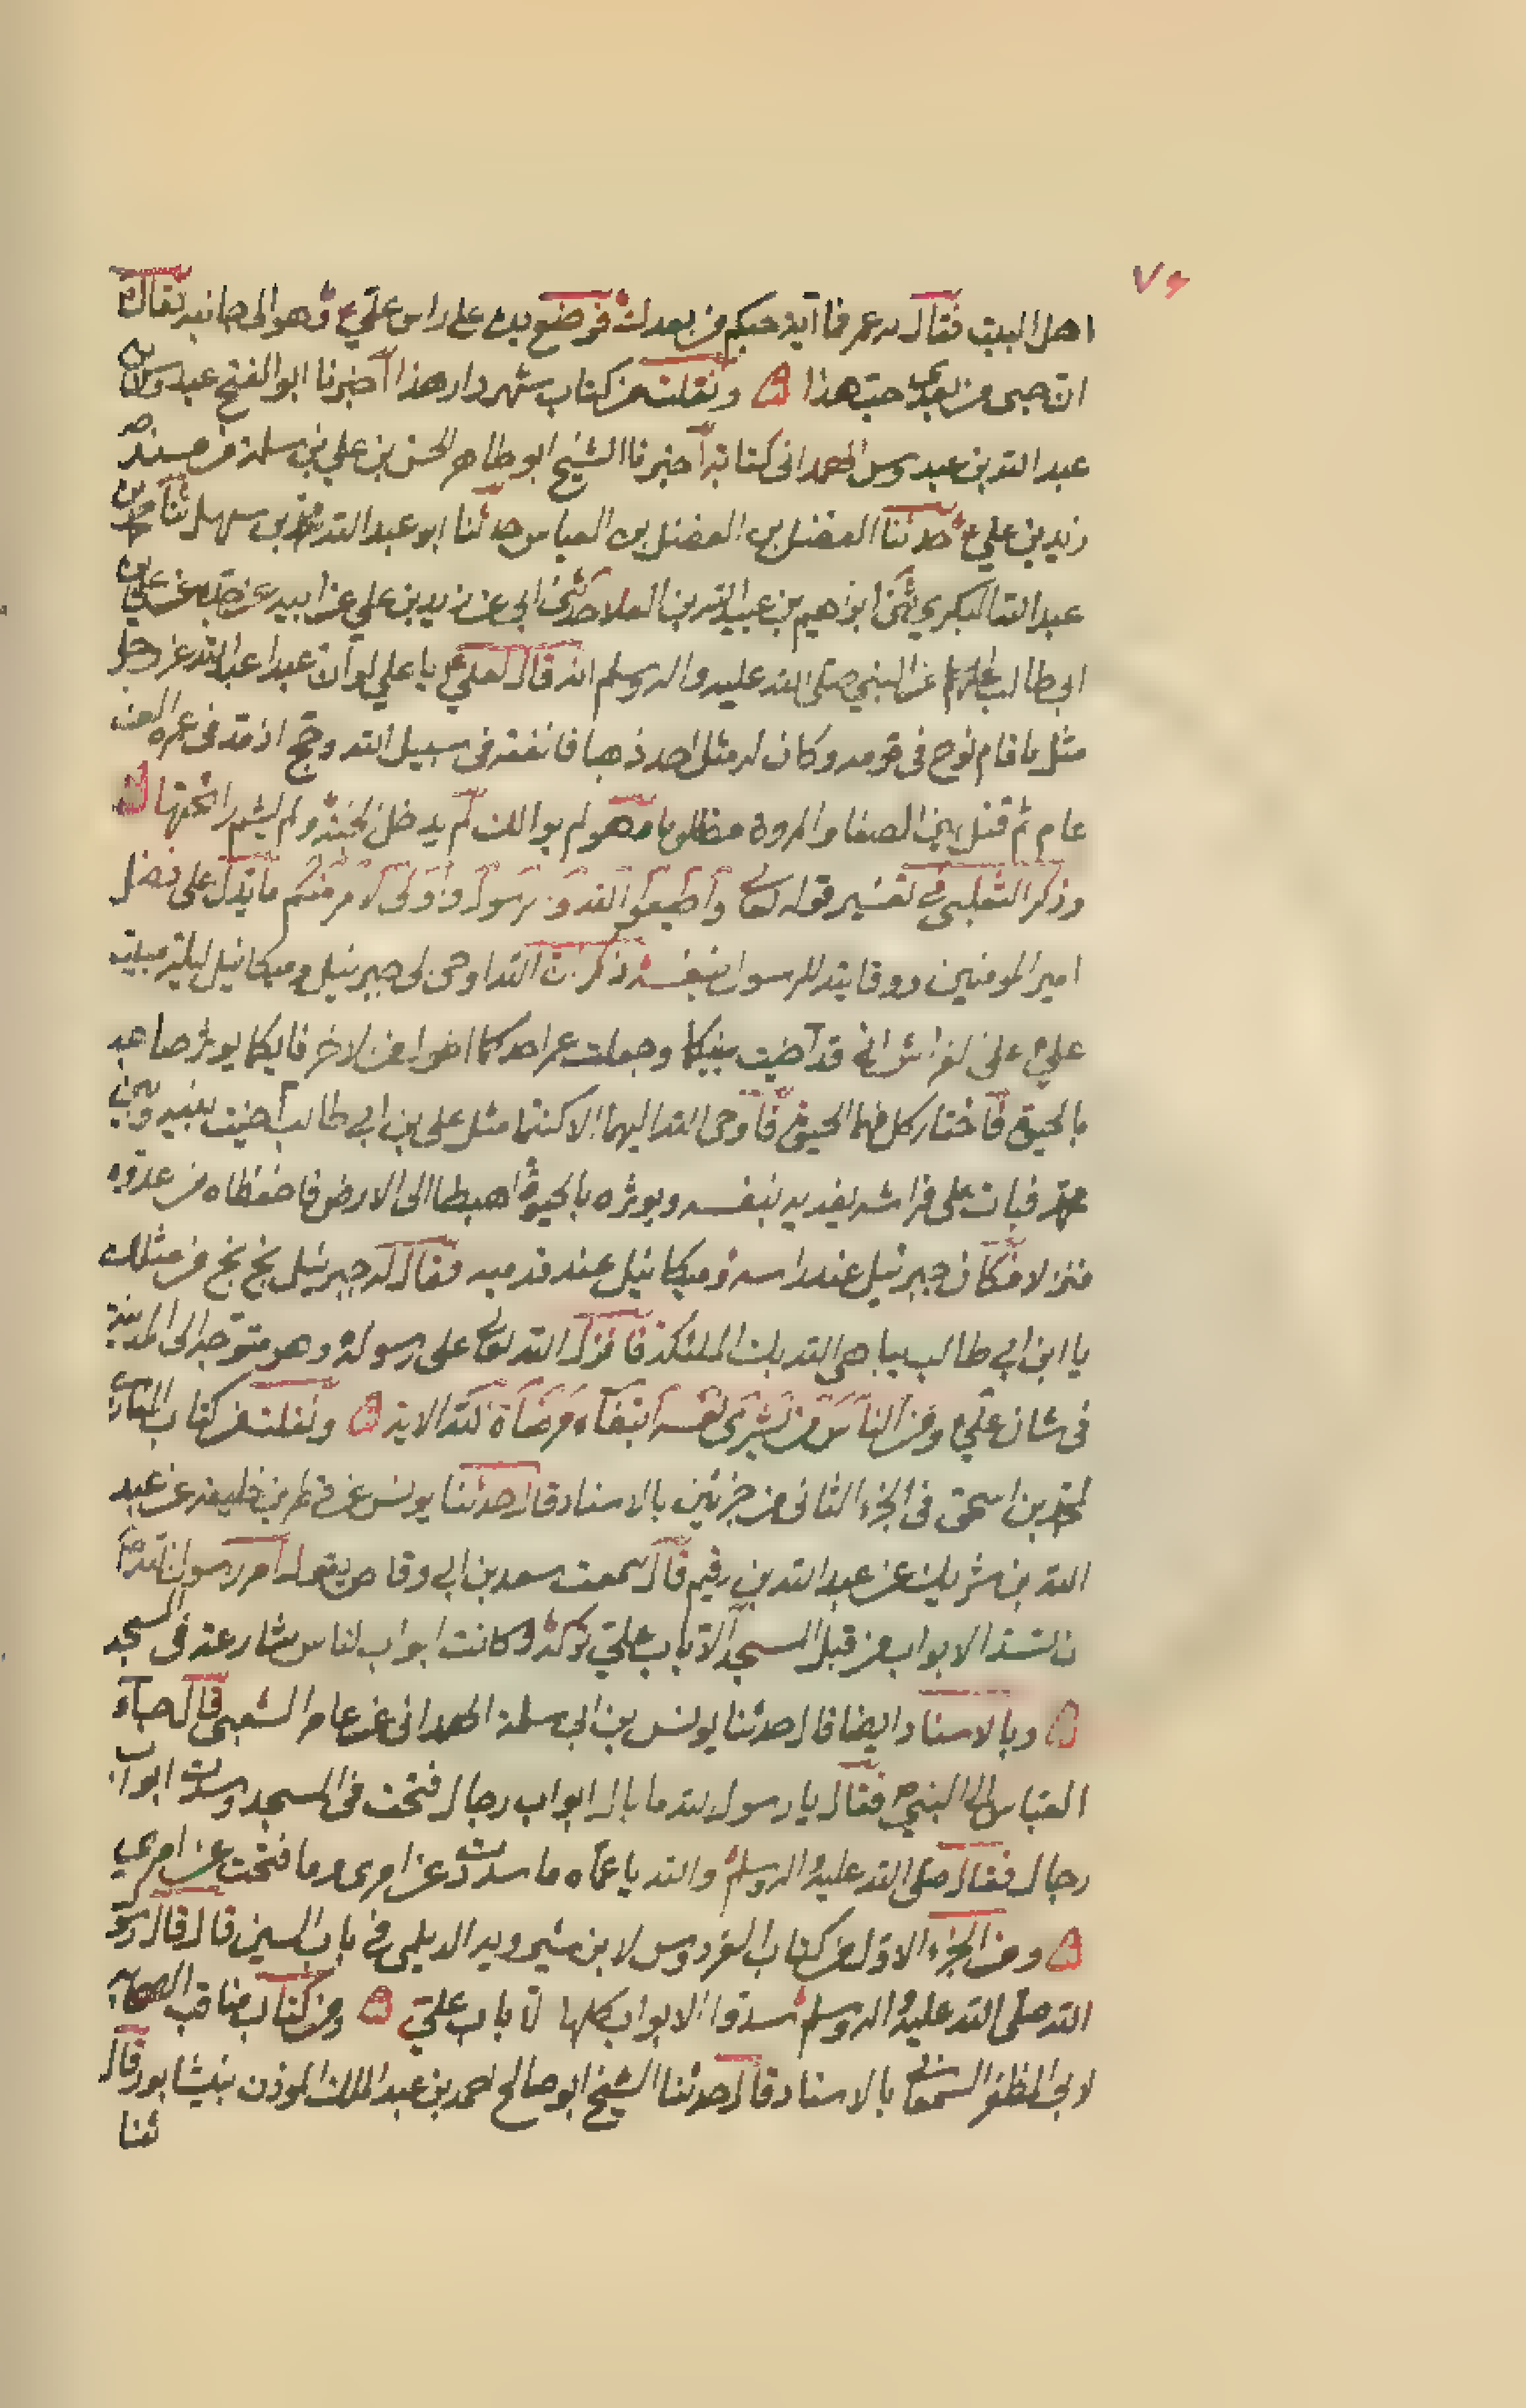 ٧۶
اهل البيت فقال له عمر فما آية حبكم من بعدك فوضع يده على راس علي ع وهو الى جانبه فقال
ان حبى من بعدى حب هذا ونقلت من كتاب شهردار هذا أخبرنا ابو الفتح عبدوس بن
عبد الله بن عبدوس الهمدانى كتابة أخبرنا الشيخ ابو طاهر الحسن بن علي بن سلمة من مسند
زيد بن علي ع حدثنا الفضل بن الفضل بن العباس حدثنا ابو عبد الله محمد بن سهل ثنا محمد بن
عبد الله البكري ثنى ابرهيم بن عبيد الله بن العلا حدثنى ابى عن زيد بن علي عن ابيه عن جده عن علي بن
ابى طالب عن النبي صلى الله عليه واله وسلم انه قال لعلي ع يا علي لو أن عبدا عبد الله عز وجل
مثل ما قام نوح فى قومه وكان له مثل احد ذهبا فانفقه فى سبيل الله وحج ومد فى عمره الف
عام ثم قتل بين الصفا والمروة مظلوما وهو لم يوالك لم يدخل الجنة ولم يشم رائحتها
وذكر الثعلبى في تفسير قوله تعالى وأطيعوا الله و الرسول وأولى الامر منكم ما يدل على فضل
امير المومنين ووقايته للرسول بنفسه ذكر ان الله اوحى الى جبرئيل وميكائيل ليلة مبيت
علي ع على الفراش انى قد آخيت بينكما وجعلت عمر احدكما اطول من الاخر فايكما يوثر صاحبه
بالحيوة فاختار كل منهما الحيوة فأوحى الله اليهما الا كنتما مثل على بن ابي طالب آخيت بينه وبين
محمد فبات على فراشه يفديه بنفسه ويوثره بالحيوة اهبطا الى الارض فاحفظاه من عدوه
فنزلا فكان جبرئيل عند راسه وميكائيل عند قدميه فقال له جبرئيل بخ بخ من مثلك
يا ابن ابي طالب يباهى الله بك الملئكة فانزل الله تعالى على رسوله وهو متوجه الى المدينة
فى شان علي ع ومن الناس من يشرى نفسه ابتغاء مرضاة الله الاية ونقلت من كتاب المغازى
لمحمد بن اسحق فى الجزء الثانى من جزئين بالاسناد قال حدثنا يونس عن فطر بن خليفة عن عبد
الله بن شريك عن عبد الله بن رقيم قال سمعت سعد بن ابي وقاص يقول أمر رسول الله
تسد الابواب من قبل المسجد الا باب علي تركه وكانت ابواب الناس شارعة فى المسجد
وبالاسناد ايضا قال حدثنا يونس بن ابى سلمة الهمدانى عن عامر الشعبى قال جاء
العباس الى النبي ص فقال يا رسول الله ما بال ابواب رجال فتحت فى المسجد وسدت ابواب
رجال فقال صلى الله عليه واله وسلم والله يا عماه ما سددت عن امرى وما فتحت عن امري
ومن الجزء الاول من كتاب الفردوس لابن شيرويه الديلمى في باب السين قال قال رسول
الله صلى الله عليه واله وسلم سدوا الابواب كلها الا باب علي ومن كتاب مناقب الصحابة
لابى المظفر السمعاني بالاسناد قال حدثنا الشيخ ابو صالح احمد بن عبد الملك الموذن بنيشابور قال
ثنا